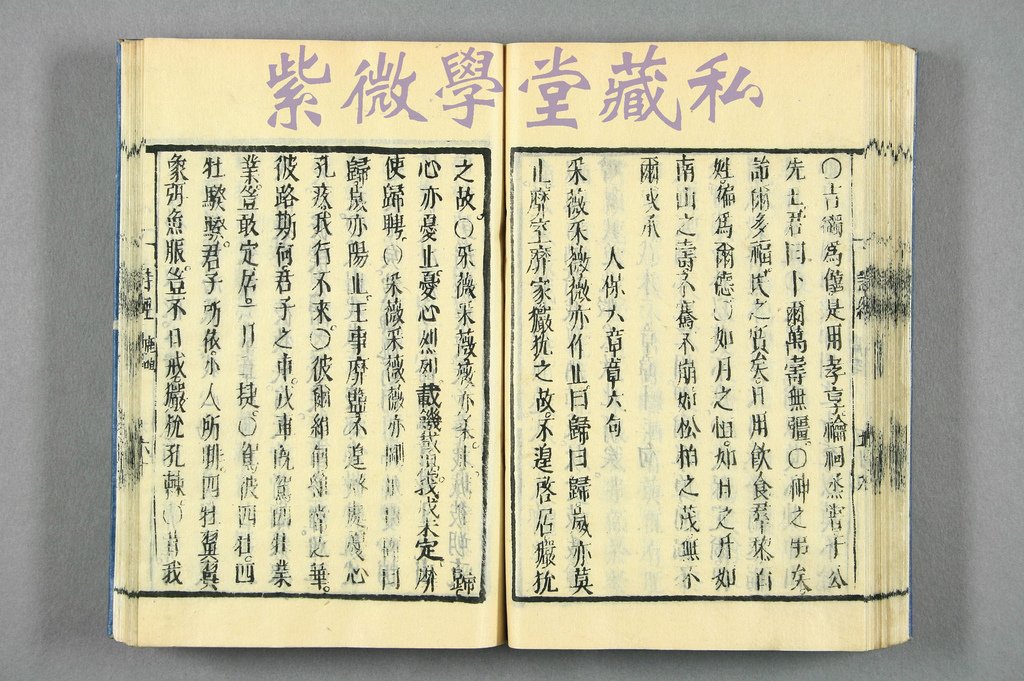 紫微學堂藏私
○吉蠲爲饎是用孝享禴祠烝嘗于公
先王君曰卜爾萬壽無疆。○神之弔矣。
詒爾多福。民之質矣。日用飲食羣黎百
姓徧爲爾德○如月之恒。如日之升如
南山之壽不騫不崩如松柏之茂無不
爾或承
天保六章章六句
采薇采薇薇亦作止曰歸曰歸歲亦莫
止靡室靡家玁狁之故。不遑啓居玁狁
之故。○采薇采薇薇亦柔止歸
心亦憂止憂心烈烈載饑載渴我戍未定靡
使歸聘○采薇采薇薇亦剛曰
歸歲亦陽止王事靡盬不遑啓處憂心
孔疚我行不來○彼爾維何維常之華。
彼路斯何君子之車。戎車既駕四牡業
業。豈敢定居。一月捷○駕彼四牡。四
牡騤騤。君子所依。小人所腓四牡翼翼
象弭魚服。豈不日戒玁狁孔棘。○昔我